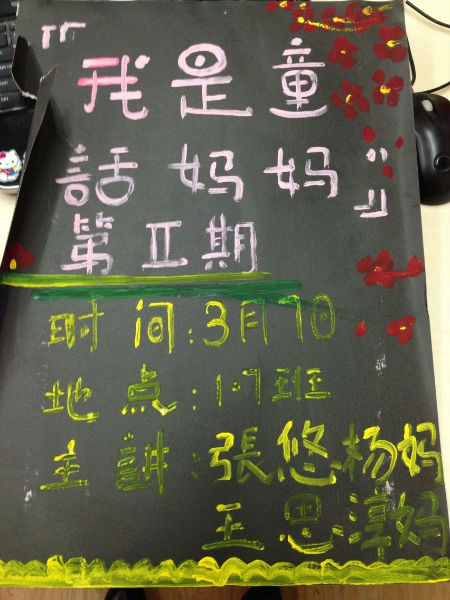 『我是童
話妈妈』
第Ⅱ期
时间:3月7日
地点:1·7班
主講:張悠杨妈
王思淳妈